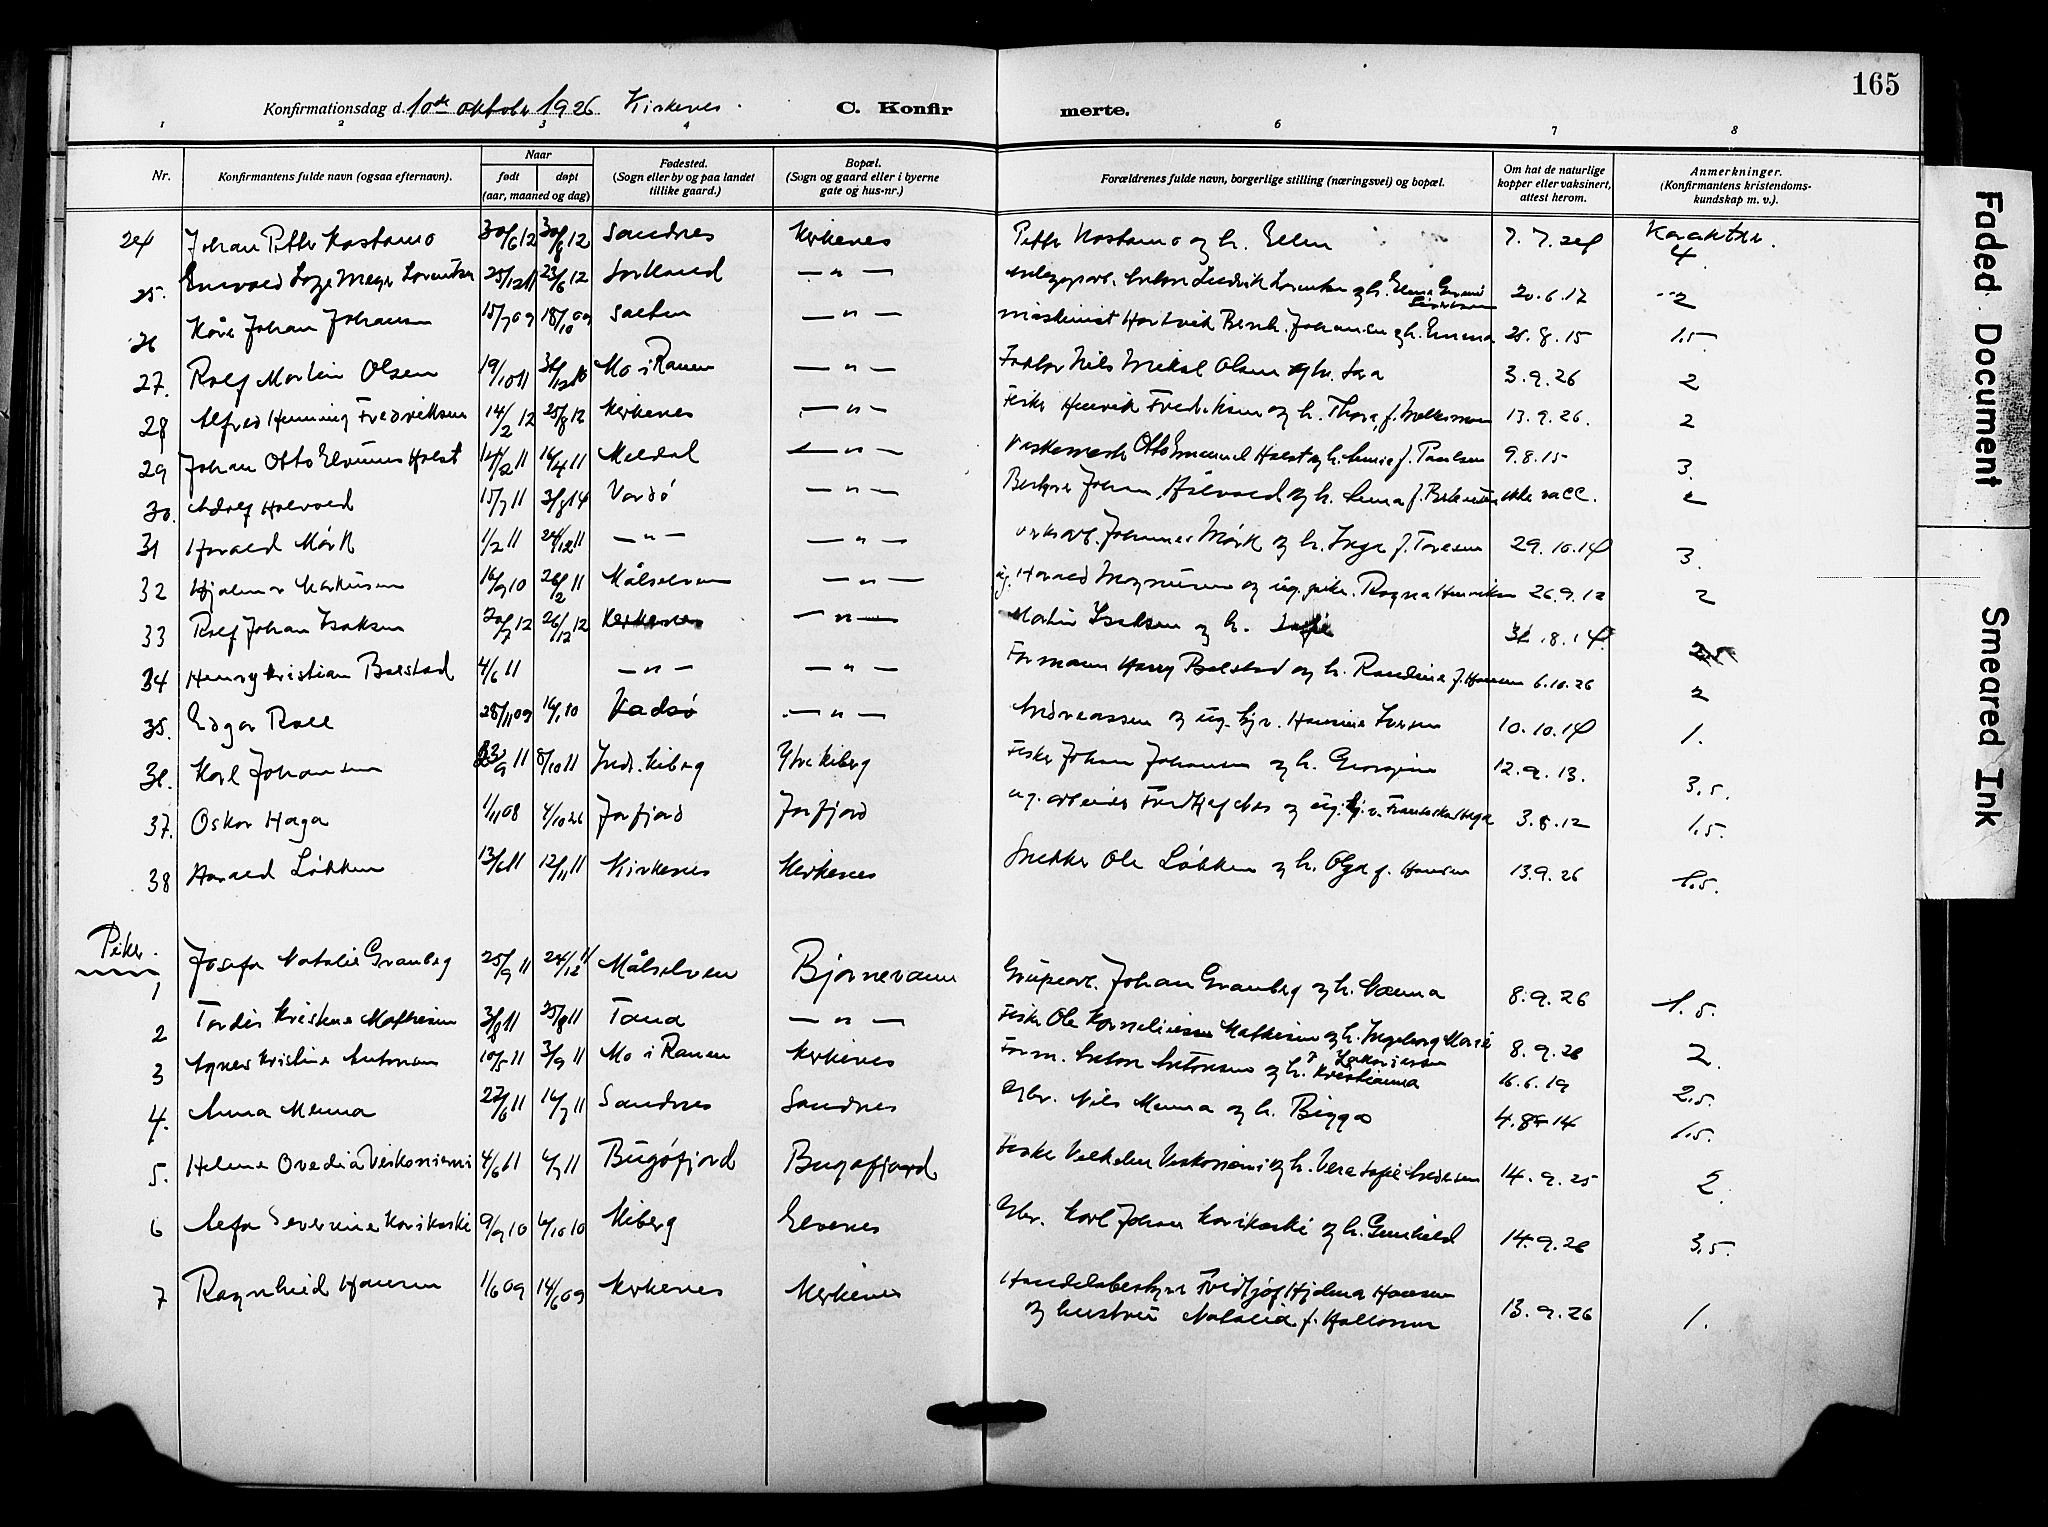 165
Konfirmationsdag d. 10de oktober 1926 Kirkenes. C. Konfirmerte.
1 2 3 4 6 7 8
Nr. Konfirmantens fulde navn (ogsaa efternavn). Naar født døpt (aar, maaned og dag) Fødested. (Sogn eller by og paa landet tillike gaard.) Bopæl. (Sogn og gaard eller i byerne gate og hus-nr.) Forældrenes fulde navn, borgerlige stilling (næringsvei) og bopæl. Om hat de naturlige kopper eller vaksinert, attest herom. Anmerkninger. (Konfirmantens kristendomskundskap m. v.).
24 Johan Petter Kostamo 30/6 12 30/8 12 Sandnes Kirkenes Petter Kostamo og h. Ellen 7.7.24 Karakter. 4
25. Meyer Lorentsen 25/12 11 23/6 12 — " — Anton Fredrik Lorentsen og h. 20.6.17 2
26 Kåre Johan Johansen 15/7 09 18/10 09 Salten — " — Maskinist Hartvik Bernh. Johansen og h. Emma 28.8.15 1.5
27. Rolf Martin Olsen 19/10 11 Mo i Ranen — " — Nils Mikal Olsen og h. Sara 3.9.26 2
28 Alfred Henning Fredriksen 14/2 12 25/8 12 Kirkenes — " — Fisker Henrik Fredriksen og h. Thora, f. 13.9.26. 2
29 Johan Otto Holst 14/2 11 16/4 11 Meldal — " — Otto Emanuel Holst og h. Anna f. Paulsen 9.8.15 3.
30. Adolf Halvold 15/7 11 31/8 14 Vardø — " — Bestyrer Johan og h. Anna f. ikke vacc. 2
31 Harald Mørk 1/2 11 26/12 11 — " — — " — Johannes Mørk og h. Inga f. Toresen 29.10.14 3.
32 Hjalmar Markusen 16/9 10 26/2 11 Målselven — " — ug. Harald Magnusen og ug. pike. Ragna Henriksen 26.9.12 2
33 Rolf Johan Isaksen 20/7 12 26/12 12 Kirkenes — " — Martin Isaksen og h. 31.8.14.
34 Henry Kristian Balstad 4/6 11 — " — — " — Formann Harry Balstad og h. Randine f. Hansen 6.10.26 2
35. Edgar Roll 28/11 09 16/1 10 Vadsø — " — Andreassen og ug. hjv. Hansine Iversen 10.10.14 1.
36. Karl Johansen 23/9 11 8/10 11 Indre Kiberg Ytre Kiberg Fisker Johan Johansen og h. Georgine 12.9.13. 3,5.
37. Oskar Haga 1/11 08 4/10 26 Jarfjord Jarfjord ug. arbeider Fridthjof Næs og ug. hjv. 3.8.12 1.5.
38 Harald Løkken 13/6 11 12/11 11 Kirkenes Kirkenes Snekker Ole Løkken og h. Olga f. Hansen 13.9.26 1.5.
Piker.
1 Josefa Natalie Granberg 25/9 11 24/12 11 Målselven Bjørnevann Grubearb. Johan Granberg og h. Nanna 8.9.26 1.5.
2 Tordis Kristine Mathisen 3/8 11 25/8 11 Tana — " — Fisker Ole Kornelius Mathisen og h. Ingeborg Marie 8.9.26 2.
3 Agnes Kristine Antonsen 10/5 11 3/9 11 Mo i Ranen Kirkenes Form. Anton Antonsen og h. Kristianna f. Zakariassen 16.6.19 2.5.
4. Anna Menna 27/6 11 16/7 11 Sandnes Sandnes Gbr. Nils Menna og h. Bigga 4.8.14 1.5.
5. Helene Ovedia Veskoniemi 4/6 11 11 Bugøfjord Bugøfjord Fisker Vilhelm Veskoniemi og h. Vera Sofie Andersen 14.9.25 2.
6 Severine Karikoski 9/9 10 10 Kiberg Elvenes Gbr. Karl Johan Karikoski og h. Gunhild 14.9.26 3,5.
7 Ragnhild Hansen 1/6 09 14/6 09 Kirkenes Kirkenes Handelsbestyrer Fridtjof Hjalmar Hansen
og hustru Natalia f. Hallonen 13.9.26 1.
Faded Document
Smeared Ink